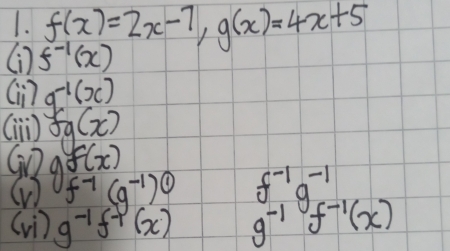 1. f(x)=2x-7, g(x)=4x+5
(i) f⁻¹(x)
(ii) g⁻¹(x)
(iii) fg(x)
(iv) gf(x)
(v) f⁻¹ (g⁻¹) f⁻¹ g⁻¹
(vi) g⁻¹ f⁻¹ (x) g⁻¹ f⁻¹(x)